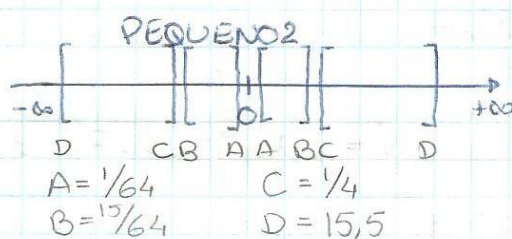 PEQUENO2
-∞ 0 +∞
D C B A A B C D
A = 1/64 C = 1/4
B = 15/64 D = 15,5